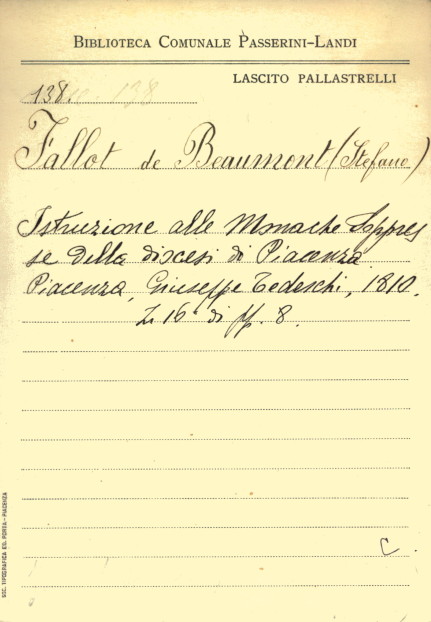 BIBLIOTECA COMUNALE PASSERINI-LANDI
LASCITO PALLASTRELLI
138.
138
Fallot de Beaumont (Stefano)
Istruzione alle Monache Soppres
se della diocesi di Piacenza
Piacenza, Giuseppe Tedeschi, 1810.
in 16° di pp. 8.
C.
SOC. TIPOGRAFICA ED. PORTA - PIACENZA